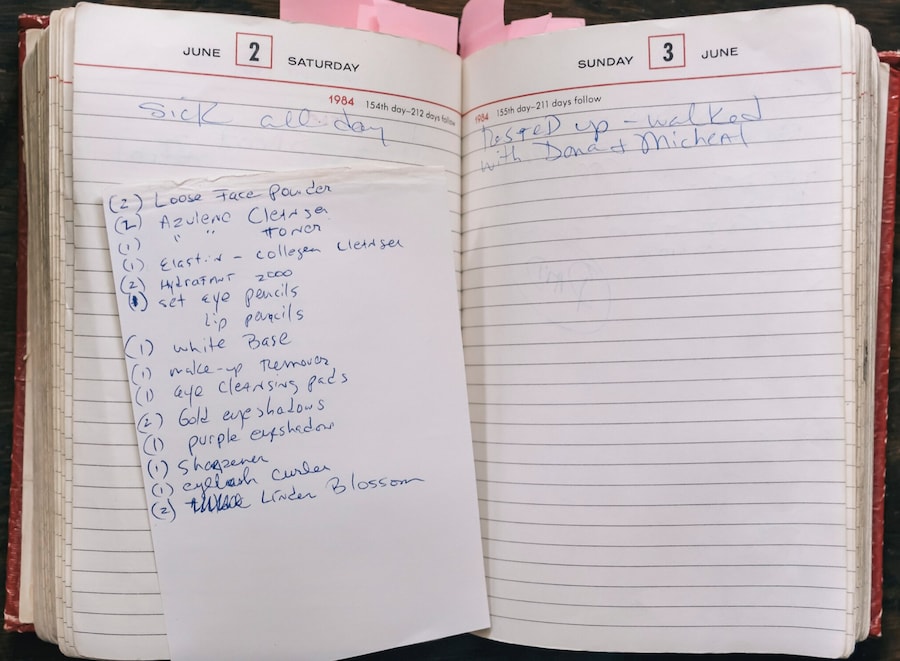 JUNE 2 SATURDAY
1984 154th day–212 days follow
Sick all day
(2) Loose Face Powder
(2) Azulene Cleanser
(1) " " toner
(1) Elastin - collagen cleanser
(2) Hydrafint 2000
(1) set eye pencils
lip pencils
(1) white Base
(1) make-up Remover
(1) eye cleansing pads
(2) Gold eyeshadows
(1) purple eyeshadow
(1) Sharpener
(1) eyelash curler
(2) Linden Blossom
SUNDAY 3 JUNE
1984 155th day–211 days follow
Rested up - walked
with Dona + Micheal